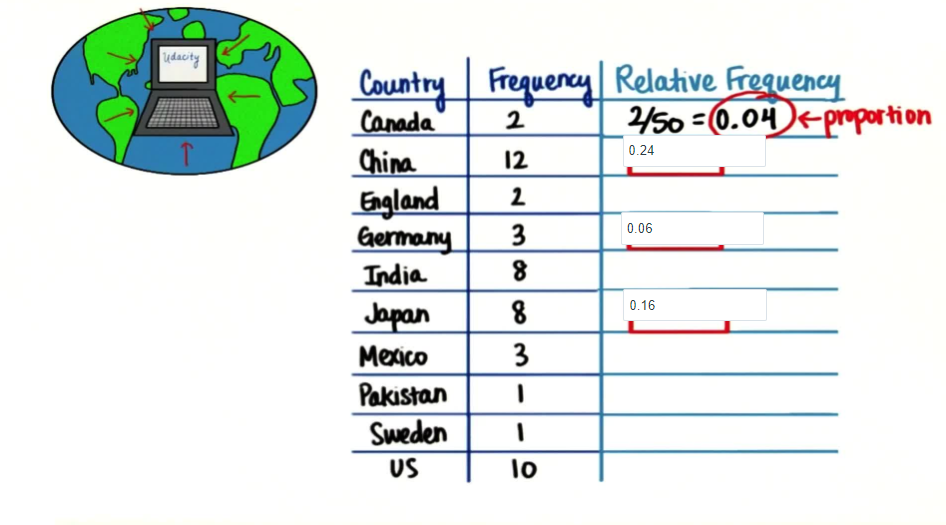 Udacity
Country Frequency Relative Frequency
Canada 2 2/50 = 0.04 ←proportion
China 12 0.24
England 2
Germany 3 0.06
India 8
Japan 8 0.16
Mexico 3
Pakistan 1
Sweden 1
US 10